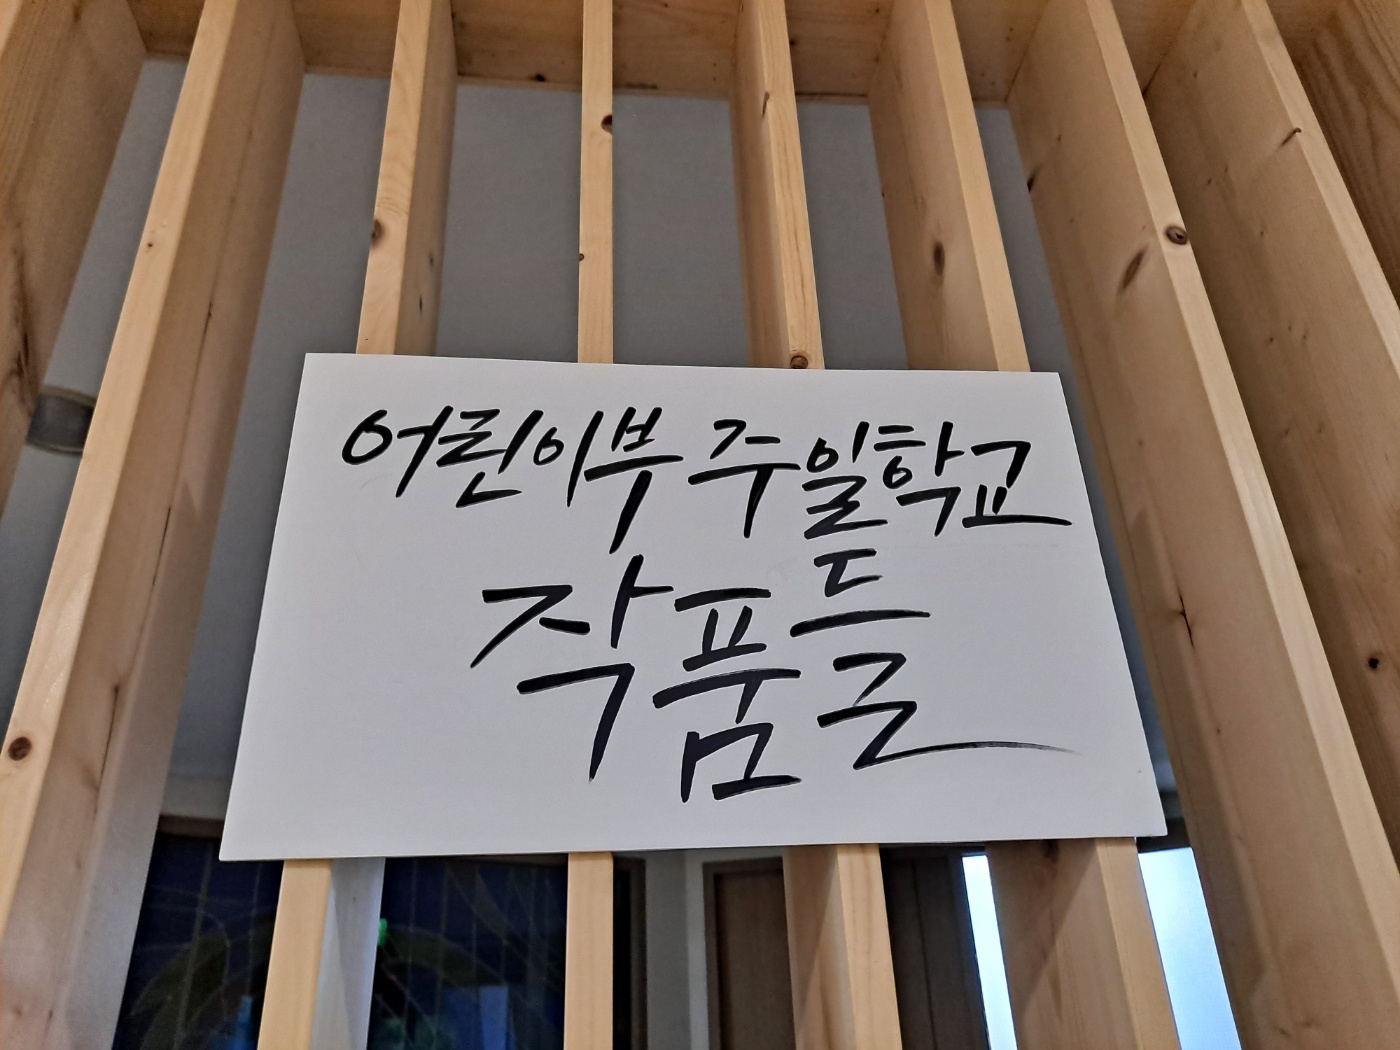 어린이부 주일학교
작품들